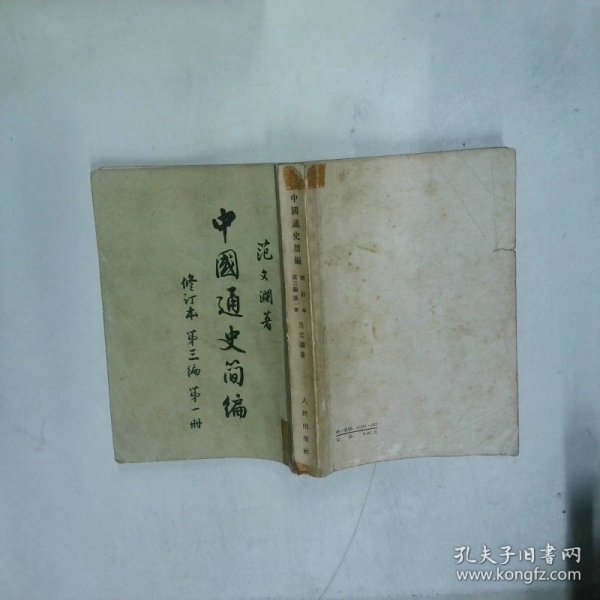 范文瀾著
中國通史简编
修订本 第三编 第一册
中國通史簡編
修訂本
第三編第一册
范文瀾著
人民出版社
孔夫子旧书网
www.kongfz.com